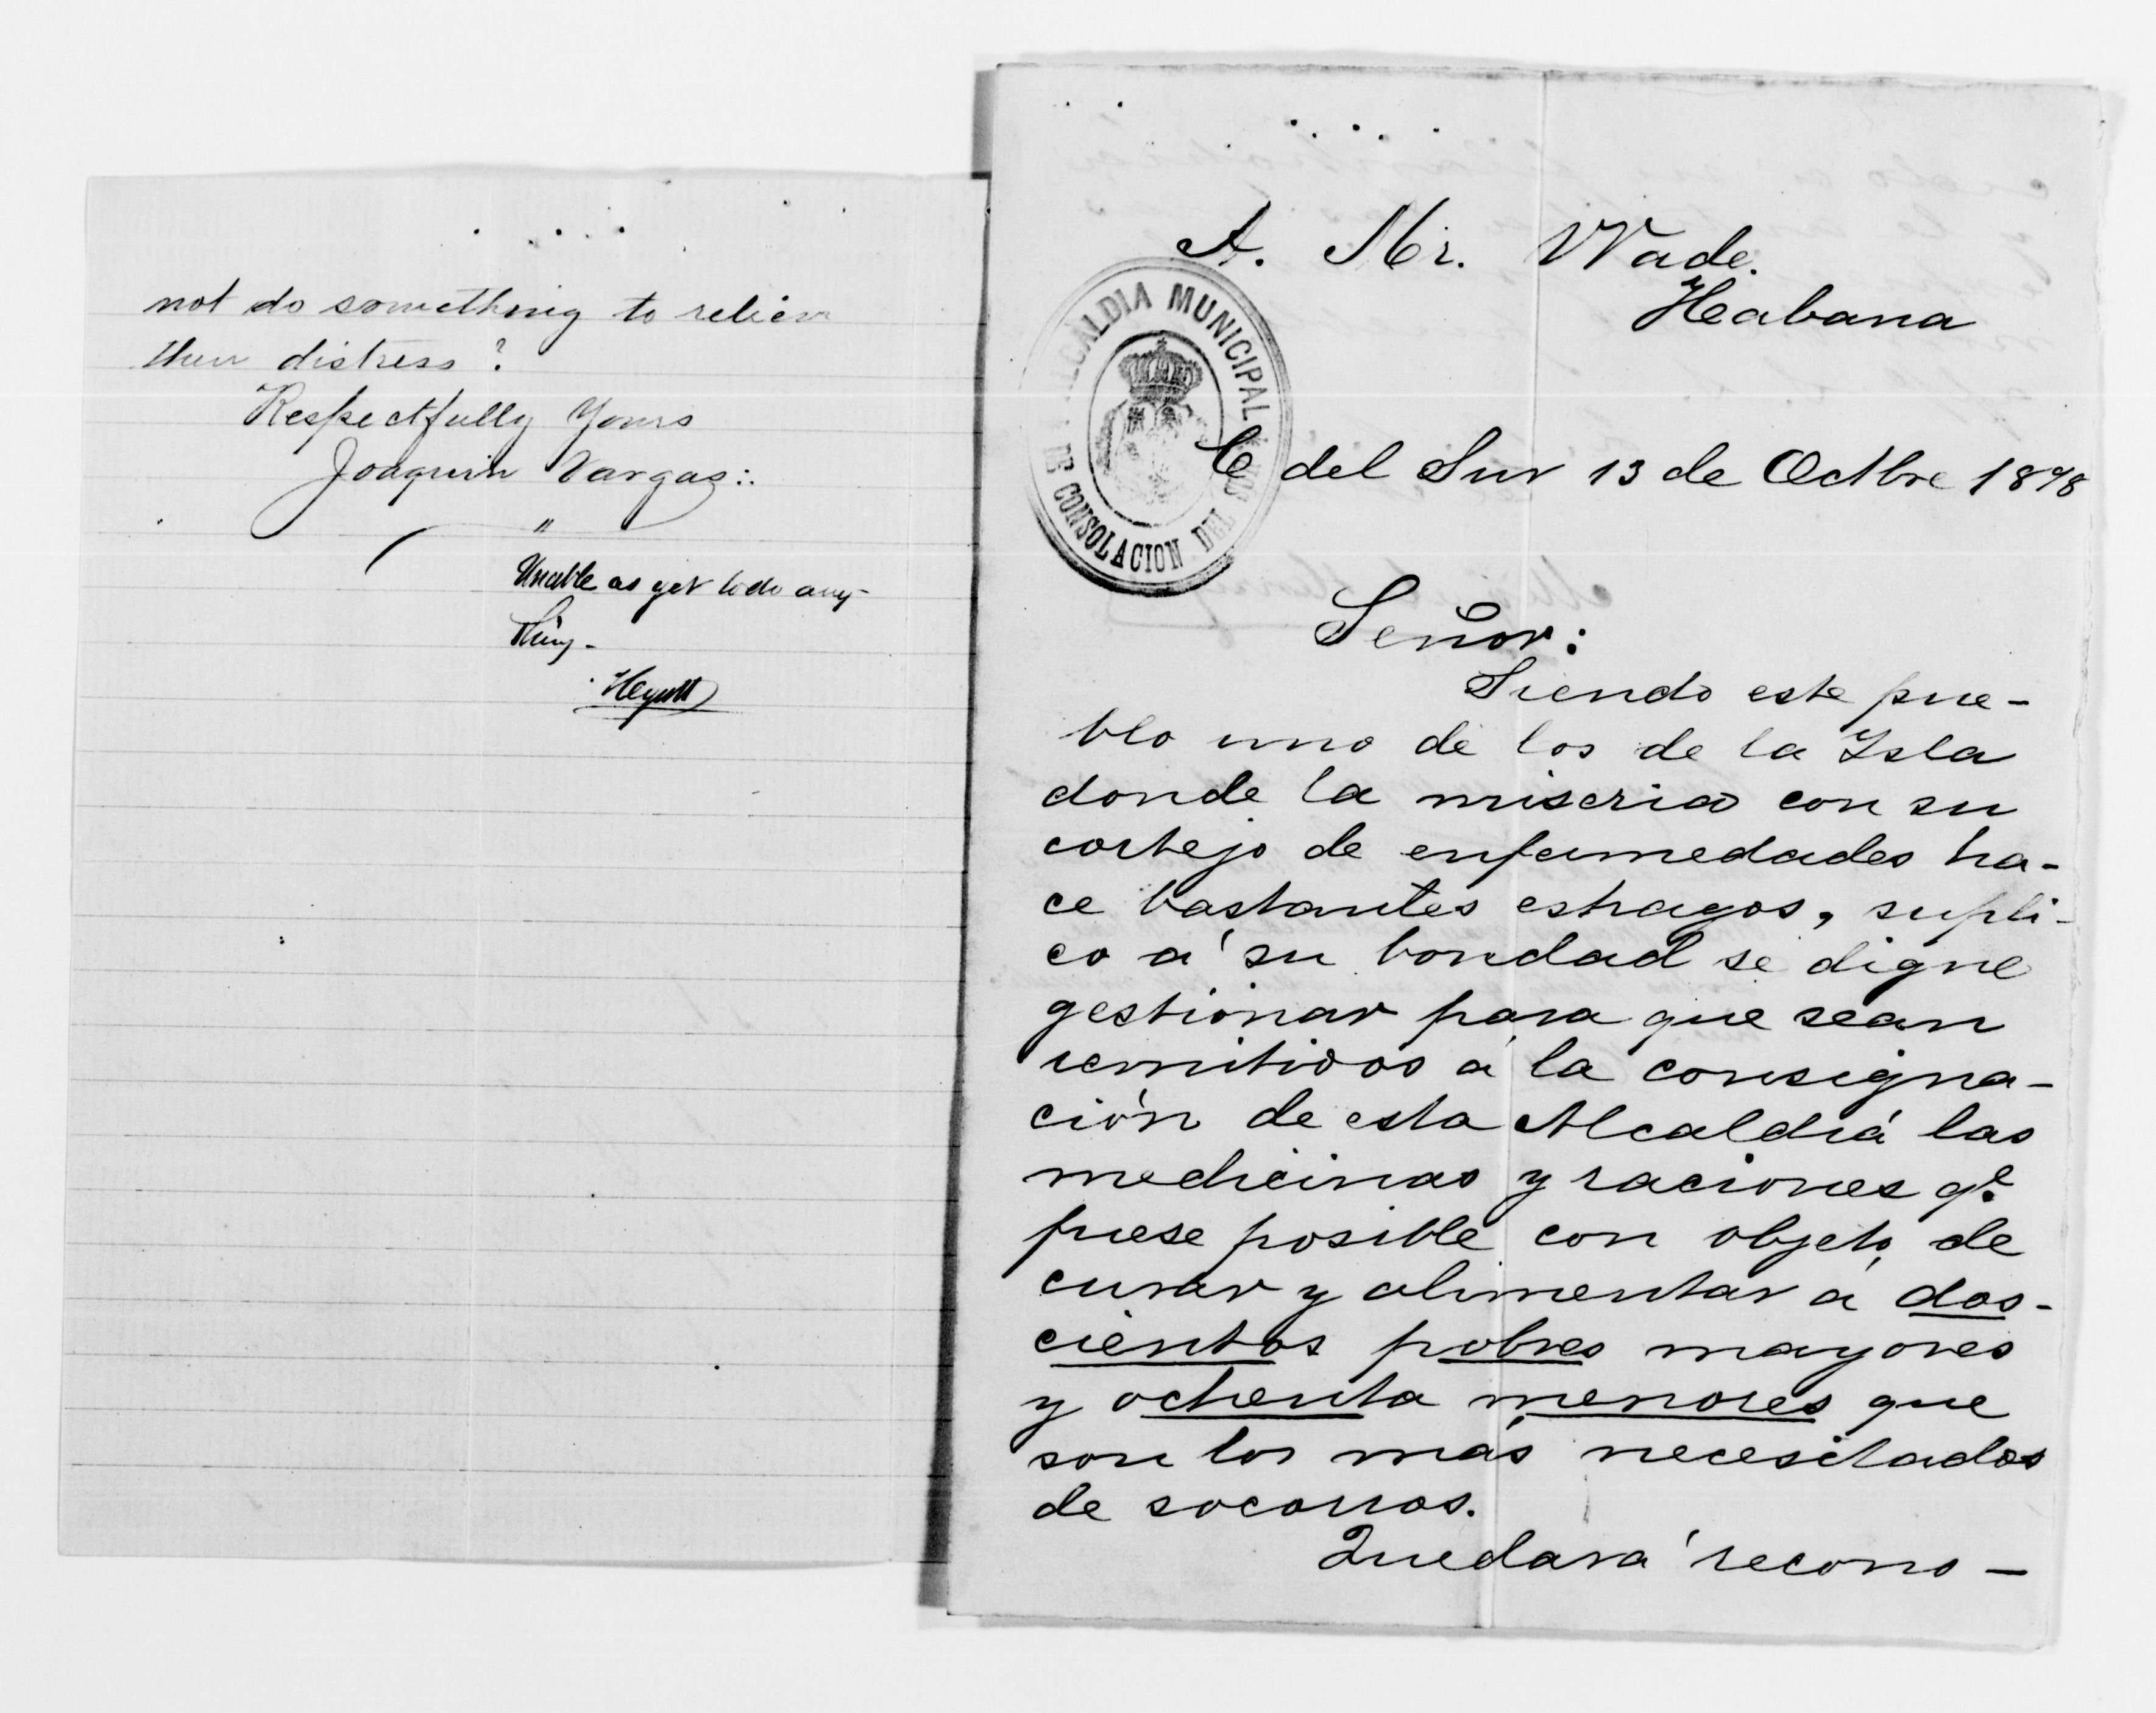 not do something to relieve
their distress?
Respectfully Yours
Joaquin Vargas:.
"
Unable as yet to do any-
thing-
A. Mr. Wade.
Habana
ALCALDIA MUNICIPAL
DE CONSOLACION DEL SUR
C del Sur 13 de Octbre 1898
Señor:
Siendo este pue-
blo uno de los de la Isla
donde la miseria con su
cortejo de enfermedades ha-
ce bastantes estragos, supli-
co á su bondad se digne
gestionar para que sean
remitidos á la consigna-
ción de esta Alcaldiá las
medicinas y raciones qe
fuese posible con objeto de
curar y alimentar á dos-
cientos pobres mayores
y ochenta menores que
son los más necesitados
de socorros.
Quedará recono-